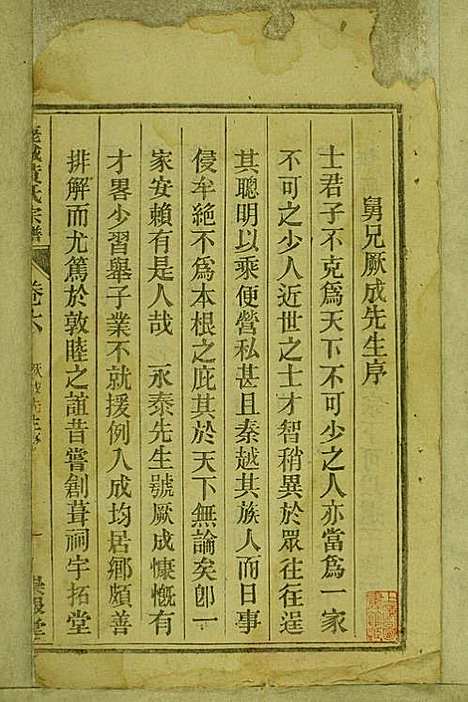 舅兄厥成先生序
士君子不克爲天下不可少之人亦當爲一家
不可之少人近世之士才智稍異於眾往往逞
其聰明以乘便營私甚且秦越其族人而日事
侵牟絕不爲本根之庇其於天下無論矣卽一
家安賴有是人哉 永泰先生號厥成慷慨有
才畧少習舉子業不就援例入成均居鄉頗善
排解而尤篤於敦睦之誼昔嘗創葺祠宇拓堂
黃氏宗譜 卷六 厥成先生序